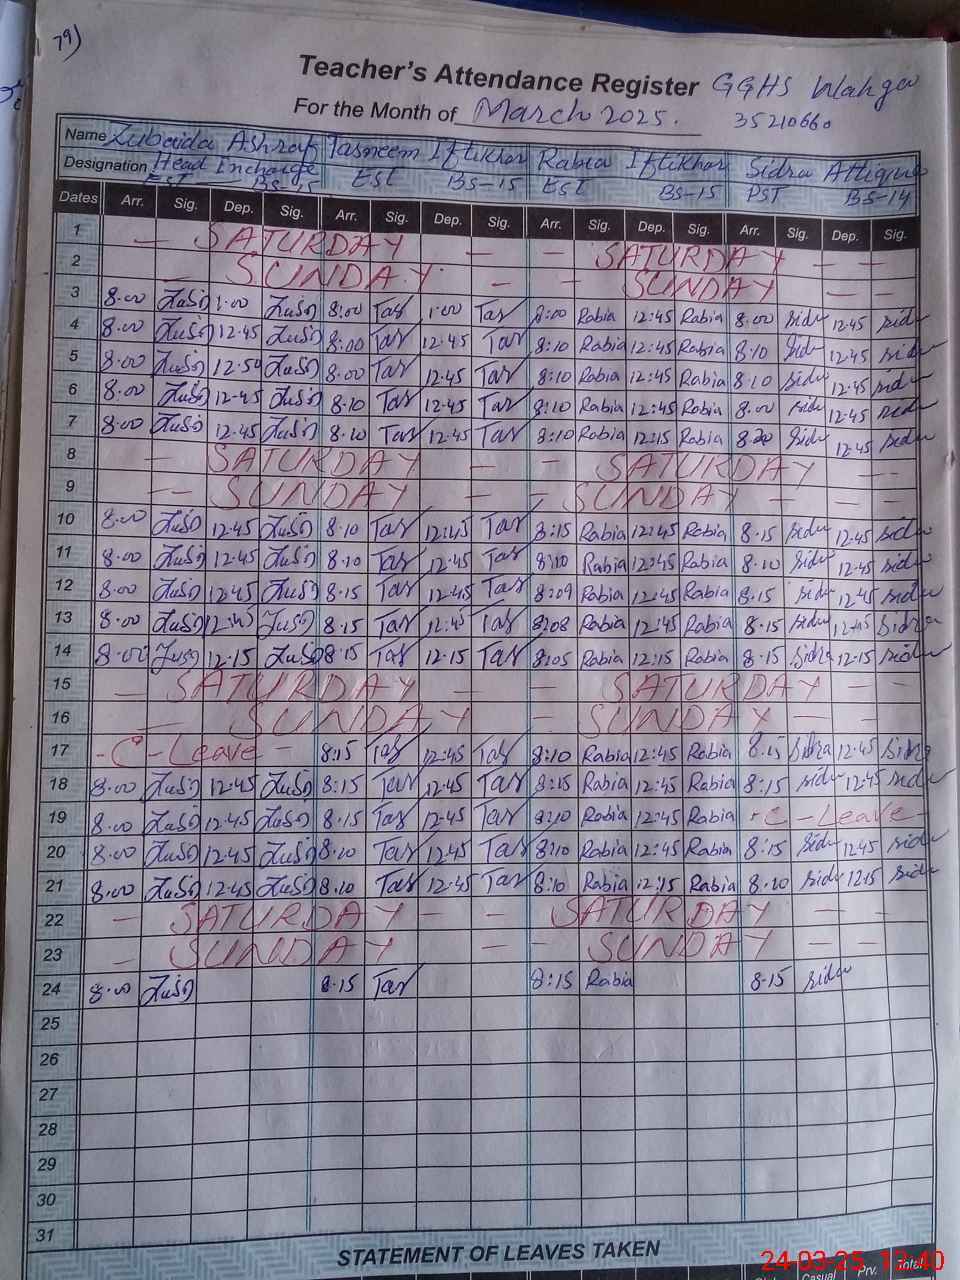 79)
Teacher's Attendance Register GGHS Wahga
For the Month of March 2025. 35210660
Name Zubaida Ashraf Tasneem Iftikhar Rabia Iftikhar Sidra Attique
Designation Head Incharge
EST BS-15 Est BS-15 Est BS-15 PST BS-14
Dates Arr. Sig. Dep. Sig. Arr. Sig. Dep. Sig. Arr. Sig. Dep. Sig. Arr. Sig. Dep. Sig.
1 — SATURDAY — — SATURDAY — —
2 — SUNDAY — — SUNDAY — —
3 8.00 1.00 8:00 Tas 1.00 Tas 8:00 Rabia 12:45 Rabia 8.00 Sidra 12.45 Sidra
4 8.00 12.45 8:00 Tas 12.45 Tas 8:10 Rabia 12:45 Rabia 8.10 Sidra 12.45 Sidra
5 8.00 12.50 8.00 Tas 12.45 Tas 8:10 Rabia 12:45 Rabia 8.10 Sidra 12.45 Sidra
6 8.00 12.45 8.10 Tas 12.45 Tas 8:10 Rabia 12:45 Rabia 8.00 Sidra 12.45 Sidra
7 8.00 12.45 8.10 Tas 12.45 Tas 8:10 Rabia 12:15 Rabia 8.20 Sidra 12.45 Sidra
8 — SATURDAY — — SATURDAY — —
9 — — SUNDAY — — SUNDAY — — —
10 8.00 12.45 8.10 Tas 12:45 Tas 8:15 Rabia 12:45 Rabia 8.15 Sidra 12.45 Sidra
11 8.00 12.45 8.10 Tas 12.45 Tas 8:10 Rabia 12:45 Rabia 8.10 Sidra 12.45 Sidra
12 8.00 12.45 8.15 Tas 12.45 Tas 8:09 Rabia 12:45 Rabia 8.15 Sidra 12.45 Sidra
13 8.00 12.45 8.15 Tas 12.45 Tas 8:08 Rabia 12:45 Rabia 8.15 Sidra 12.45 Sidra
14 8.00 12.15 8.15 Tas 12.15 Tas 8:05 Rabia 12:15 Rabia 8.15 Sidra 12.15 Sidra
15 — SATURDAY — — SATURDAY — —
16 — SUNDAY — SUNDAY — —
17 - C - Leave - 8:15 Tas 12.45 Tas 8:10 Rabia 12:45 Rabia 8.15 Sidra 12.45 Sidra
18 8.00 12.45 8:15 Tas 12.45 Tas 8:15 Rabia 12:45 Rabia 8:15 Sidra 12.45 Sidra
19 8.00 12.45 8.15 Tas 12.45 Tas 8:10 Rabia 12:45 Rabia - C - Leave -
20 8.00 12.45 8.10 Tas 12.45 Tas 8:10 Rabia 12:45 Rabia 8:15 Sidra 12.45 Sidra
21 8.00 12.45 8.10 Tas 12.45 Tas 8:10 Rabia 12:15 Rabia 8.20 Sidra 12.15 Sidra
22 — SATURDAY — — SATURDAY — —
23 — SUNDAY — — SUNDAY — —
24 8.00 8.15 Tas 8:15 Rabia 8.15 Sidra
25
26
27
28
29
30
31
STATEMENT OF LEAVES TAKEN
Casual Prv. Total
24-03-25